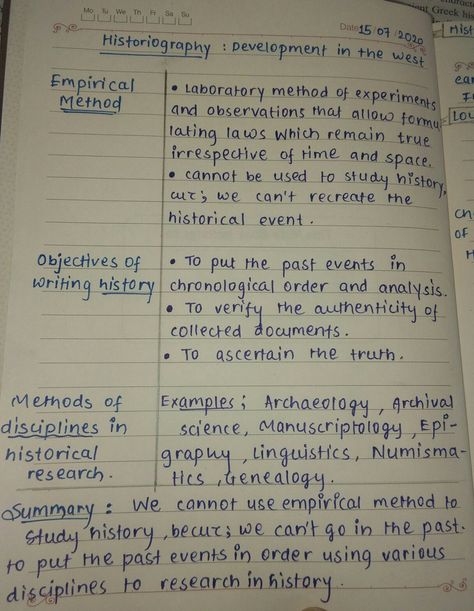 Mo Tu We Th Fr Sa Su
Date 15/07/2020
Historiography : Development in the west
Empirical
Method
• Laboratory method of experiments
and observations that allow formu
lating laws which remain true
irrespective of time and space.
• cannot be used to study history,
becuz; we can't recreate the
historical event.
Objectives of
writing history
• To put the past events in
chronological order and analysis.
• To verify the authenticity of
collected documents.
• To ascertain the truth.
Methods of
disciplines in
historical
research.
Examples; Archaeology, Archival
science, Manuscriptology, Epi-
graphy, Linguistics, Numisma-
tics, Genealogy.
Summary : We cannot use empirical method to
study history, becuz; we can't go in the past.
to put the past events in order using various
disciplines to research in history.
ient Greek hi
Mist
ear
Lou
cn
of